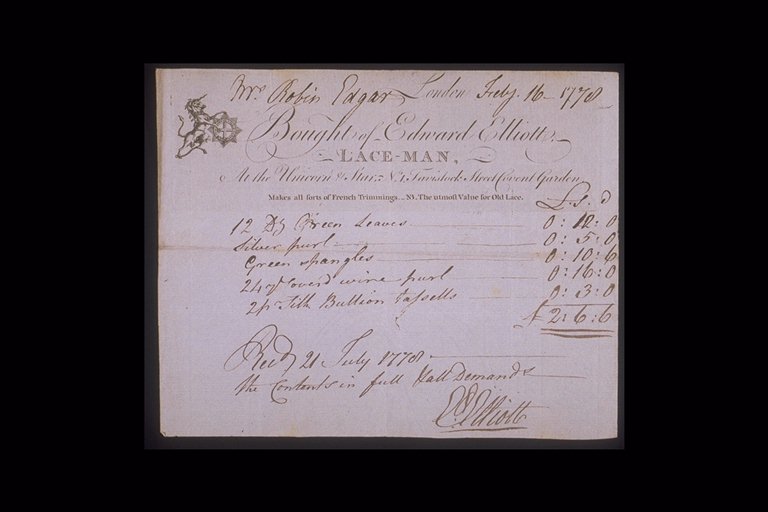 Mrs. Robin Edgar London Feby. 16 1778
Bought of Edward Elliott
LACE-MAN,
At the Unicorn & Star, N.1, Tavistock Street Covent Garden
Makes all sorts of French Trimmings... NB. The utmost Value for Old Lace.
L. s. d
12 Dz Green Leaves 0: 12: 0
Silver purl 0: 5: 0
Green spangles 0: 10: 6
24 yds cover'd wire purl 0: 16: 0
2 pr. Silk Bullion tassells 0: 3: 0
£ 2: 6: 6
Recd 21 July 1778
the Contents in full & all Demands
Ed. Elliott